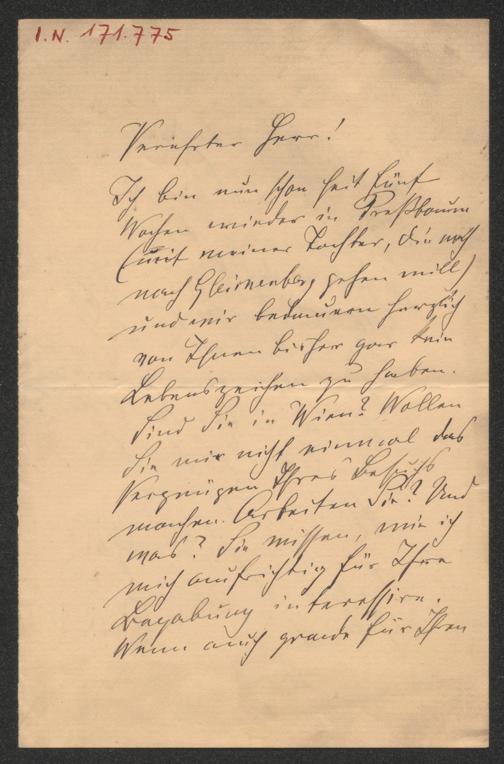 I.N. 171.775
Verehrter Herr!
Ich bin nun schon seit fünf
Wochen wieder in Preßbaum
(mit meiner Tochter, die
nach Gleichenberg gehen will)
und wir bedauern herzlich
von Ihnen bisher gar kein
Lebenszeichen zu haben.
Sind Sie in Wien? Wollen
Sie mir nicht einmal das
Vergnügen Ihres Besuchs
machen. Arbeiten Sie? Und
was? Sie wissen, wie ich
mich aufrichtig für Ihre
Begabung interessire.
Wenn auch grade für Ihren